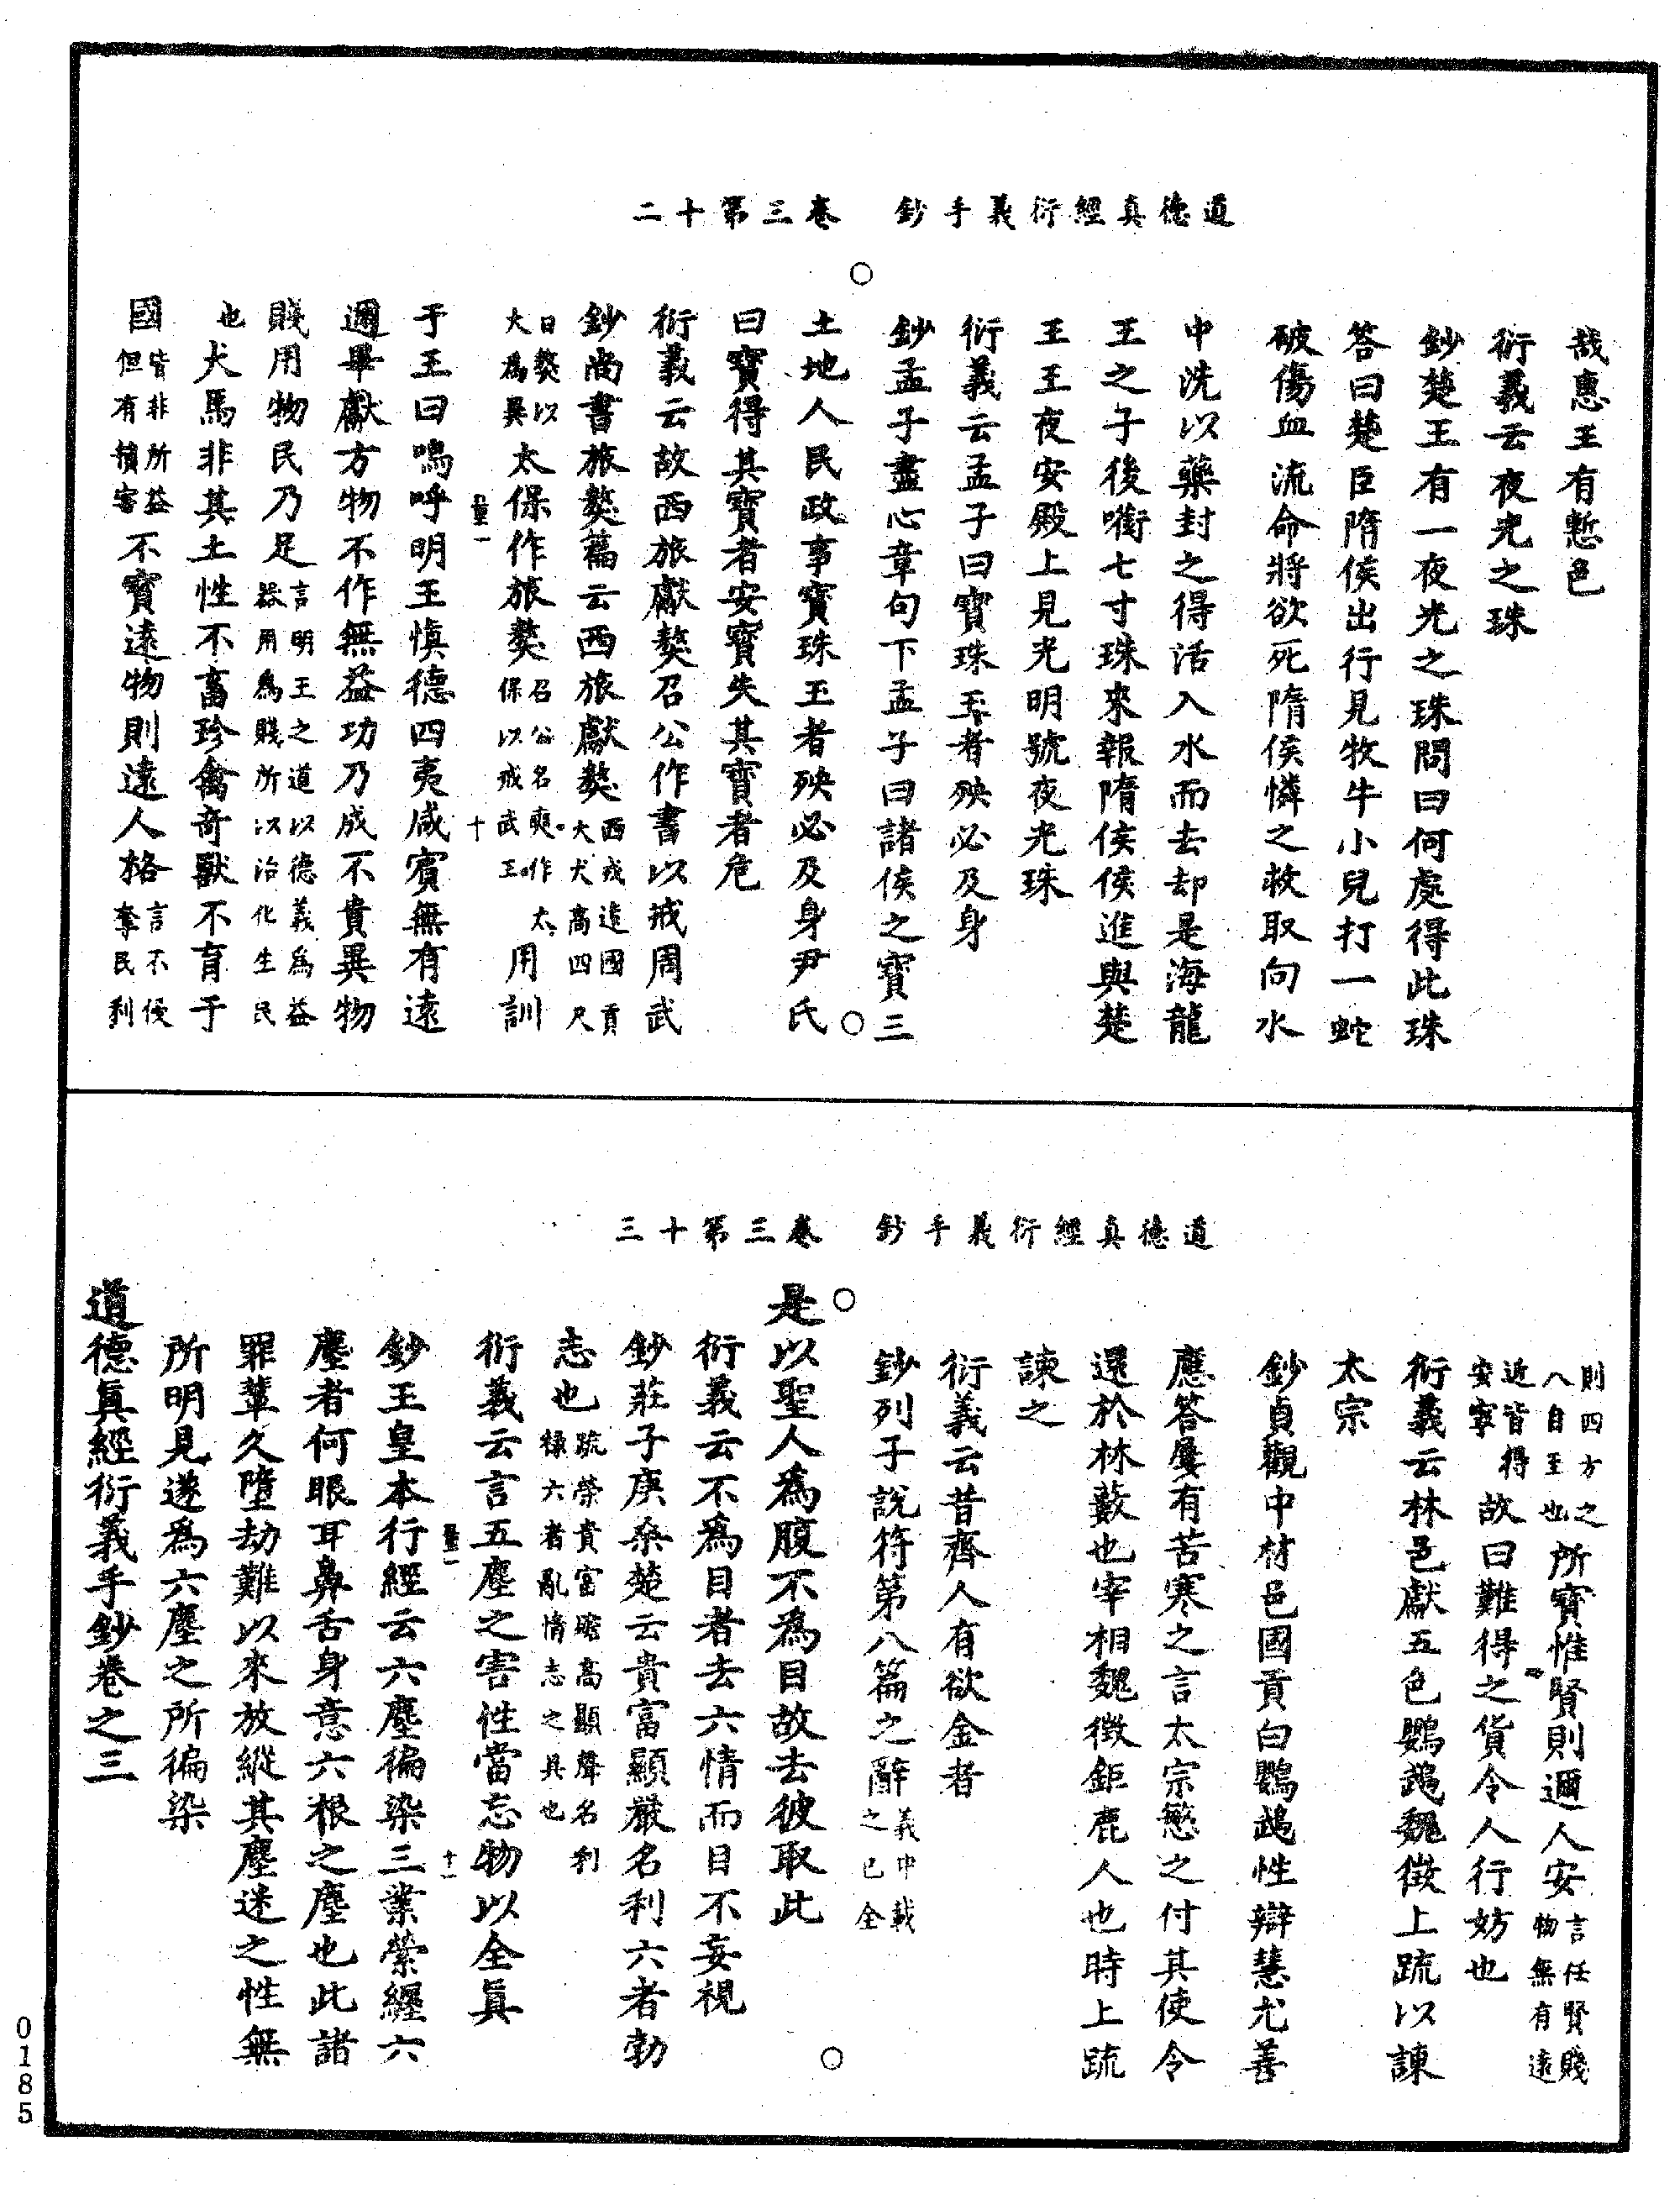 道德真經衍義手鈔　卷三第十二
哉惠王有慙色
衍義云夜光之珠
鈔楚王有一夜光之珠問曰何處得此珠
答曰楚臣隋侯出行見牧牛小兒打一蛇
破傷血流命將欲死隋侯憐之救取向水
中洗以藥封之得活入水而去却是海龍
王之子後嘴七寸珠來報隋侯侯進與楚
王王夜安殿上見光明號夜光珠
衍義云孟子曰寶珠玉者殃必及身
鈔孟子盡心章句下孟子曰諸侯之寶三
土地人民政事寶珠玉者殃必及身尹氏
曰寶得其寶者安寶失其寶者危
衍義云故西旅獻獒召公作書以戒周武
鈔尚書旅獒篇云西旅獻獒西戎遠國貢大犬高四尺
曰獒以大為異太保作旅獒召公名奭作太保以戒武王用訓
于王曰嗚呼明王慎德四夷咸賓無有遠
邇畢獻方物不作無益功乃成不貴異物
賤用物民乃足言明王之道以德義為益器用為賤所以治化生民
也犬馬非其土性不畜珍禽奇獸不育于
國皆非所益但有損害不寶遠物則遠人格言不侵奪民利
道德真經衍義手鈔　卷三第十三
則四方之人自至也所寶惟賢則邇人安言任賢賤物無有遠
近皆得安寧故曰難得之貨令人行妨也
衍義云林邑獻五色鸚鵡魏徵上疏以諫
太宗
鈔貞觀中林邑國貢白鸚鵡性辯慧尤善
應答屢有苦寒之言太宗慜之付其使令
還於林藪也宰相魏徵鉅鹿人也時上疏
諫之
衍義云昔齊人有欲金者
鈔列子說符第八篇之辭義中載之已全
是以聖人為腹不為目故去彼取此
衍義云不為目者去六情而目不妄視
鈔莊子庚桑楚云貴富顯嚴名利六者勃
志也疏榮貴富贍高顯聲名利祿六者亂情志之具也
衍義云言五塵之害性當忘物以全真
鈔王皇本行經云六塵徧染三業縈纏六
塵者何眼耳鼻舌身意六根之塵也此諸
罪輩久墮劫難以來放縱其塵迷之性無
所明見遂為六塵之所徧染
道德真經衍義手鈔卷之三
0185